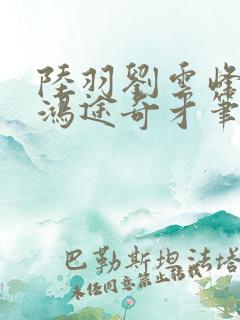 陸羽劉雲峰
鴻途奇才筆
巴勒斯坦法塔
未任同意禁止转载